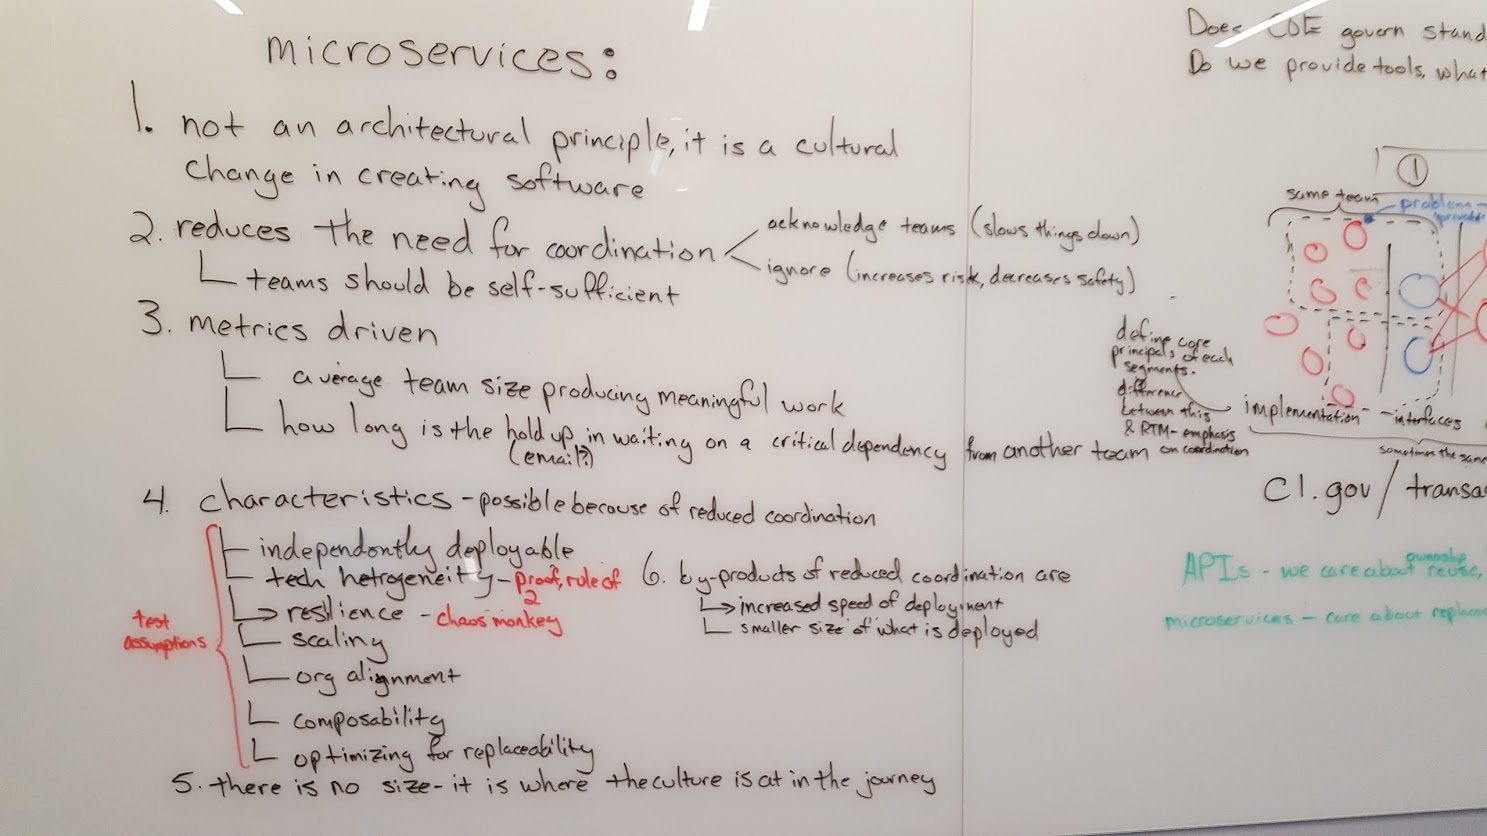 microservices:
1. not an architectural principle, it is a cultural
change in creating software
2. reduces the need for coordination
acknowledge teams (slows things down)
ignore (increases risk, decreases safety)
teams should be self-sufficient
3. metrics driven
average team size producing meaningful work
how long is the hold up in waiting on a critical dependency from another team
(email?)
4. characteristics - possible because of reduced coordination
independently deployable
tech hetrogeneity - proof, rule of
2
resilience - chaos monkey
scaling
org alignment
composability
optimizing for replaceability
test
assumptions
5. there is no size - it is where the culture is at in the journey
6. by-products of reduced coordination are
increased speed of deployment
smaller size of what is deployed
Does COE govern stand
Do we provide tools, what
1
same team
problem
define core
principals of each
segments.
difference
between this
& RTM - emphasis
on coordination
implementation - interfaces
sometimes the same
C1.gov / transa
APIs - we care about reuse,
ownership
microservices - care about replace